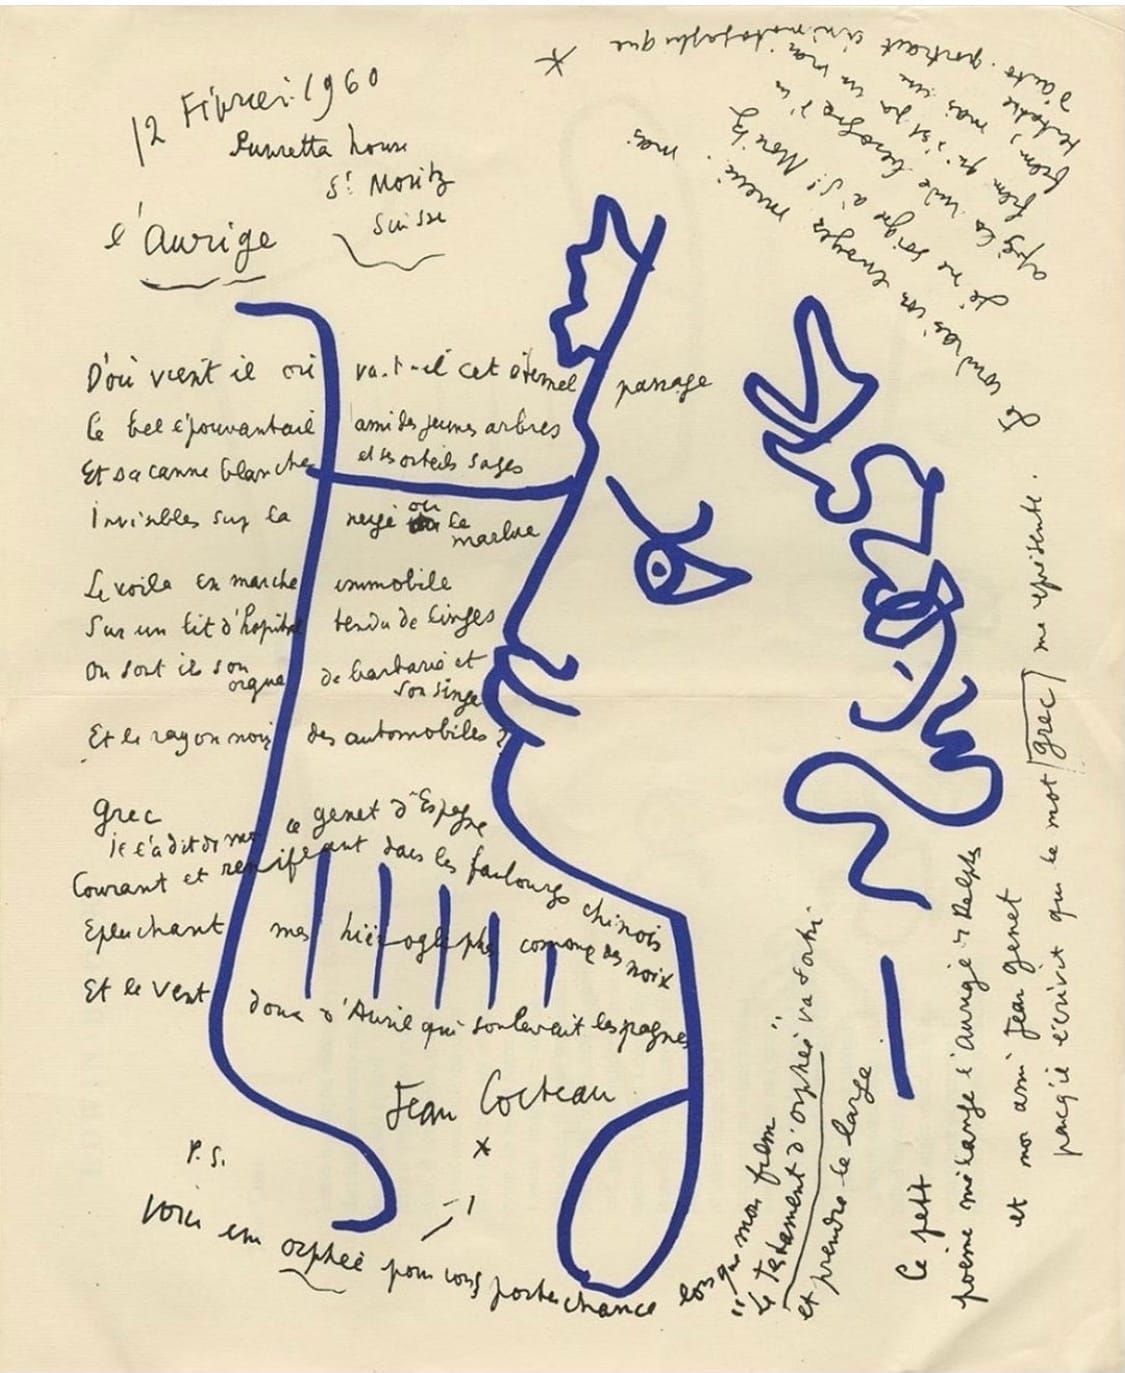 12 Février. 1960
Suvretta house
St Moritz
Suisse
l'Aurige
D'où vient il où va.t-il cet éternel passage
Ce bel épouvantail ami des jeunes arbres
Et sa canne blanche et ses orteils sages
Invisibles sur la neige ou le
marbre
Le voila en marche immobile
Sur un lit d'hopital tendu de linges
Ou sont ils son
orgue de barbarie et
son singe
Et le rayon noir des automobiles ?
Grec
je l'a dit de moi ce genet d'Espagne
Courant et reniflant dans les faubourgs chinois
Epluchant mes hiéroglyphes comme des noix
Et le vent doux d'Avril qui soulevait les pagnes
Jean Cocteau
*
P.S.
Voici un orphée pour vous porter chance lorsque mon film
"le testament d'orphée" va sortir
et prendre le large
Ce petit
poème mélange l'aurige de Delphes
et mon ami Jean genet
parcequ'il écrivit que le mot grec me représente.
Je voudrais vous envoyer mieux. mais
je me soigne à St Moritz
après la rude besogne d'un
film qui n'est pas un vrai
film, mais une
d'auto. portrait cinématographique
*